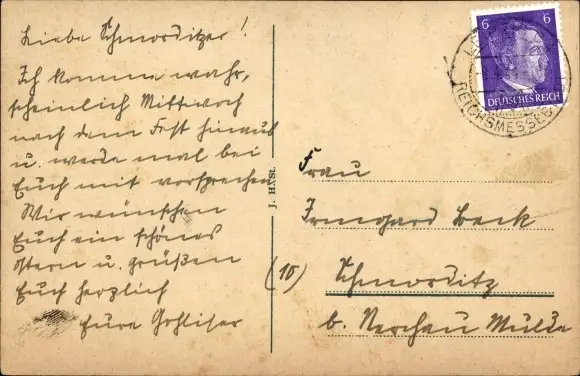 Liebe Schmorditzer!
Ich komme wahr,
scheinlich Mittwoch
nach dem Fest hinaus
u. werde mal bei
Euch mit vorsprechen
Wir wünschen
Euch ein schönes
Ostern u. grüßen
Euch herzlich
Eure Gohliser
J. H. St.
6 6
DEUTSCHES REICH
REICHSMESSES
Frau
Irmgard Beck
(10) Schmorditz
b. Nerchau Mulde